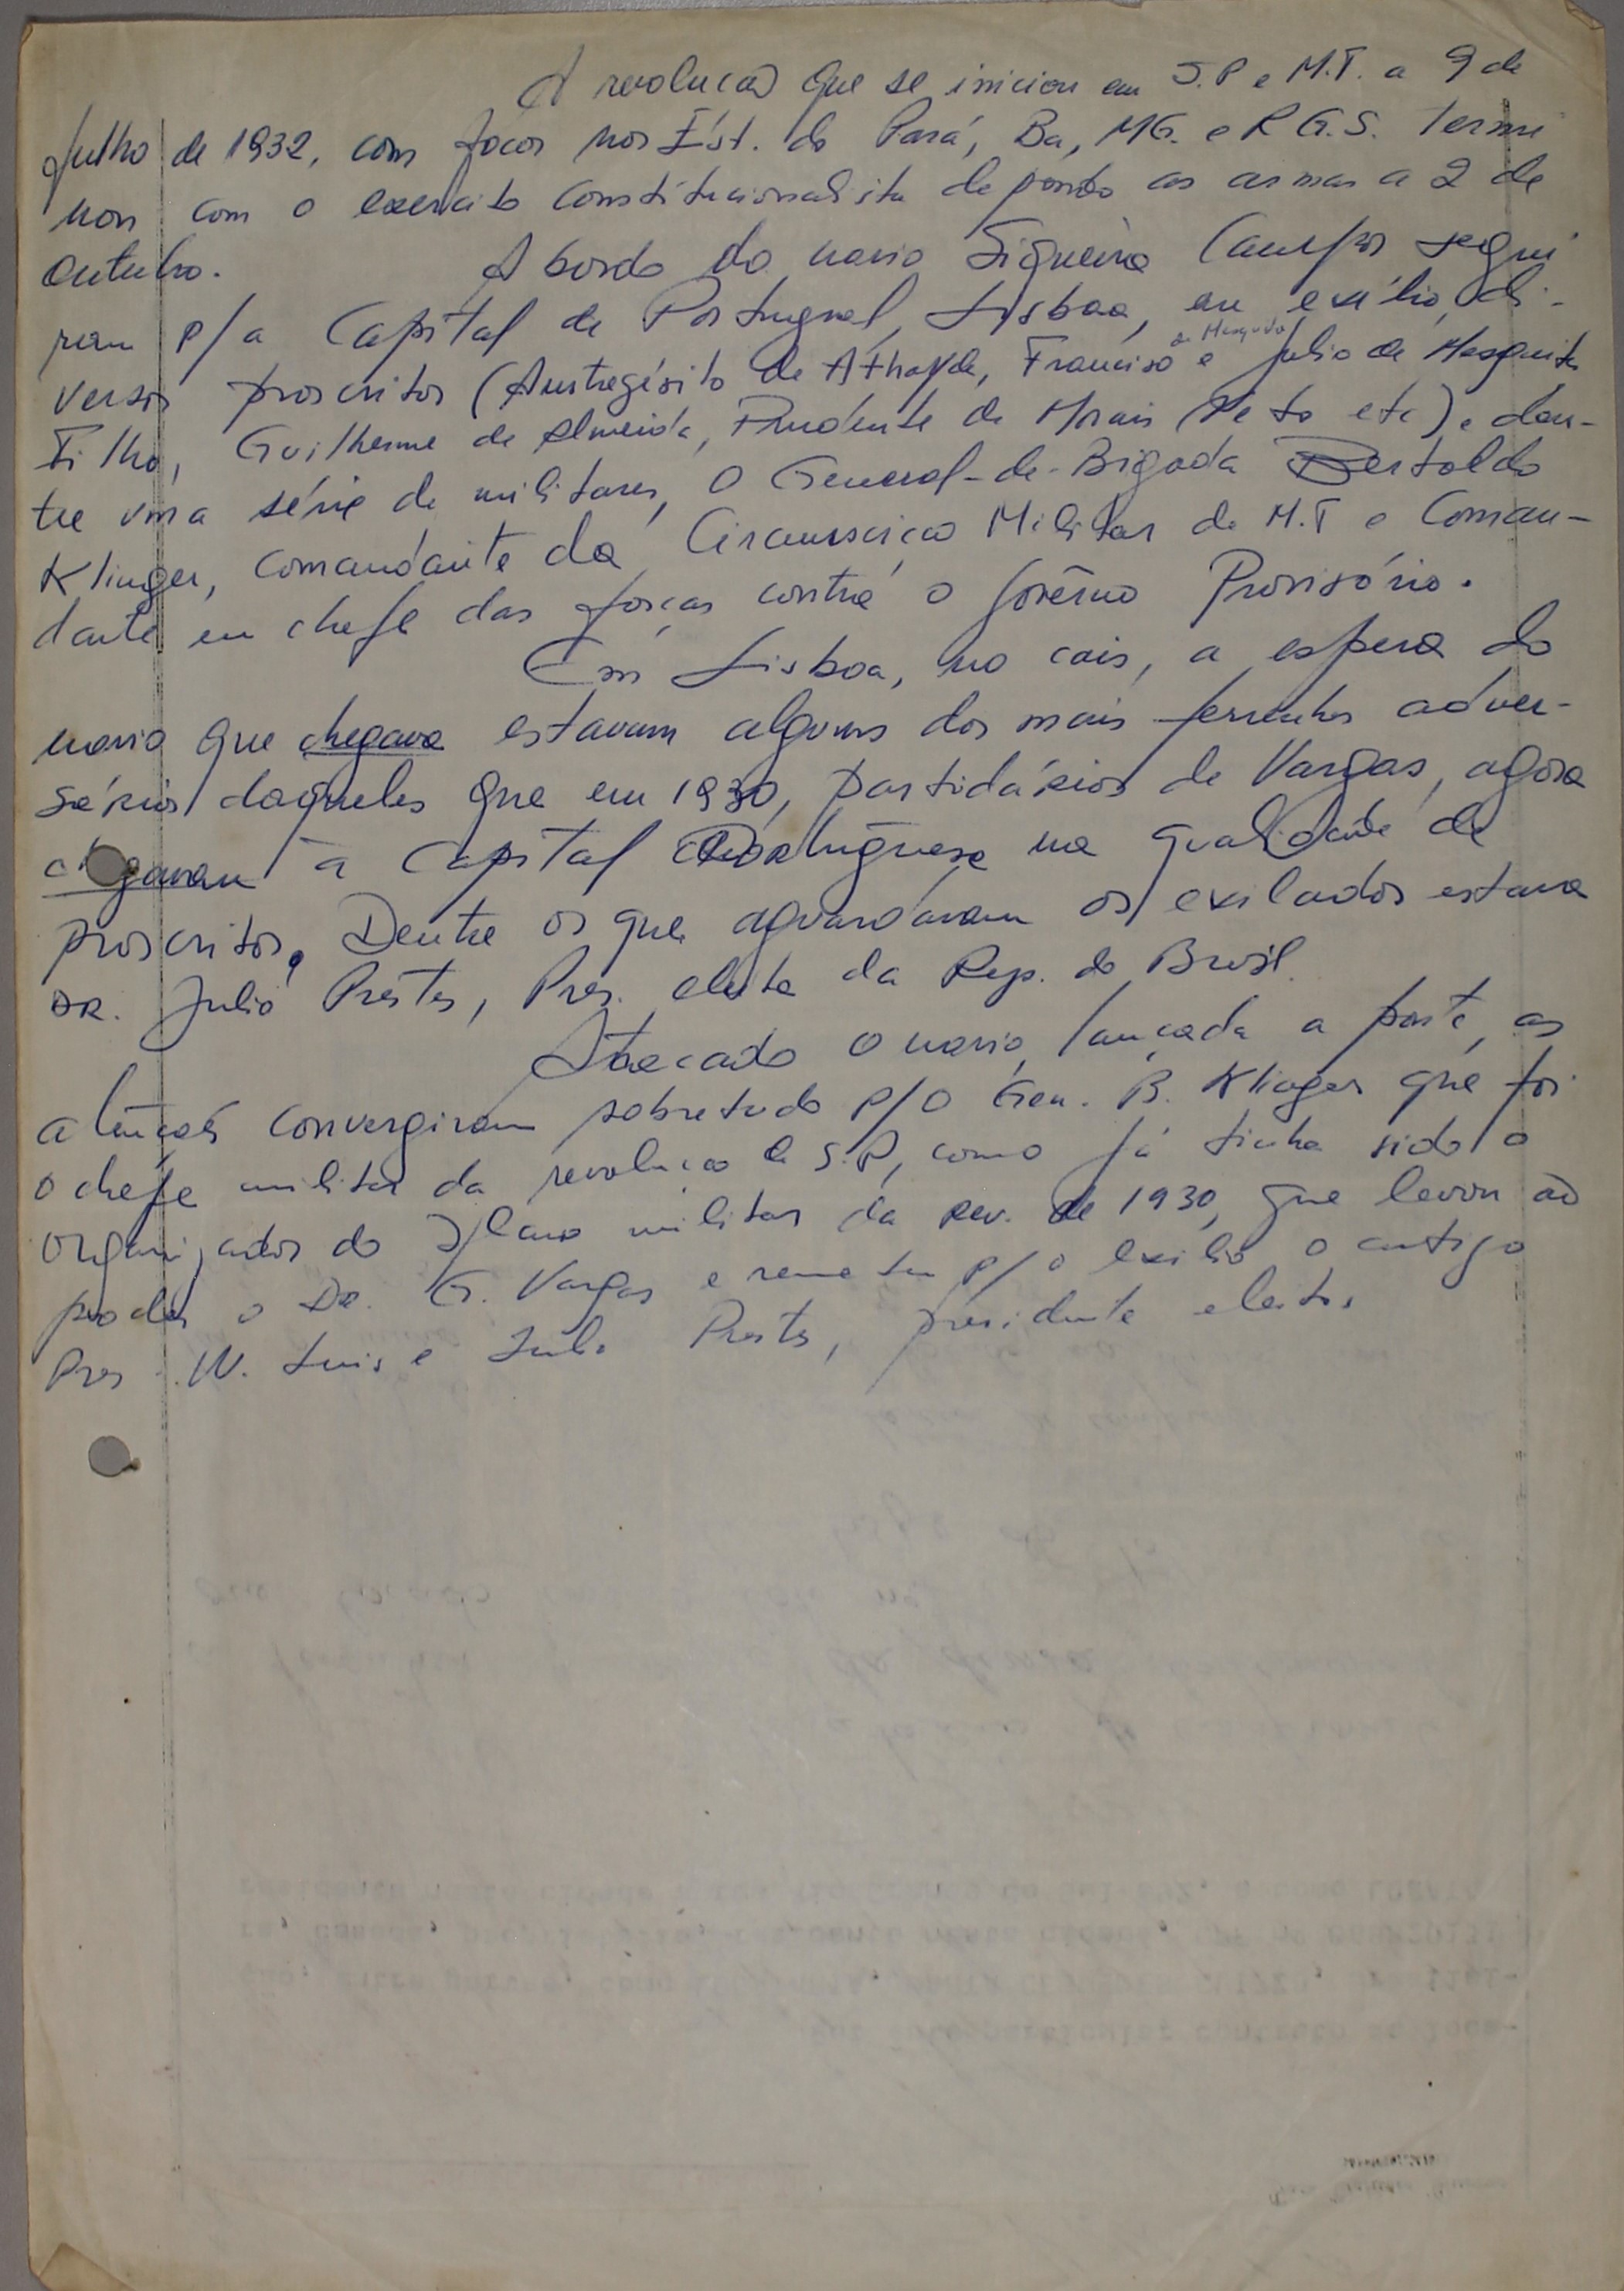 A revolução que se iniciou em S.P e M.T. a 9 de
Julho de 1932, com focos nos Est. do Pará, Ba, MG. e R G.S. termi
nou com o exercito constitucionalista depondo as armas a 2 de
Outubro. A bordo do navio Siqueira Campos segui
ram p/a Capital de Portugual, Lisboa, em exílio, di-
versos proscritos (Austregésilo de Athayde, Francisco de Mesquita e Julio de Mesquita
Filho, Guilherme de Almeida, Prudente de Morais Neto etc), e den-
tre uma série de militares, o General-de-Brigada Bertoldo
Klinger, comandante da Circunscrição Militar de M.T e Coman-
dante em chefe das forças contra o Govêrno Provisório.
Em Lisboa, no cais, a espera do
navio que chegava estavam alguns dos mais ferrenhos adver-
sários daqueles que em 1930, partidários de Vargas, agora
chegavam à Capital Portuguesa na qualidade de
proscritos. Dentre os que aguardavam os exilados estava
DR. Julio Prestes, Pres. eleito da Rep. do Brasil.
Atracado o navio, lançada a ponte, as
atenções convergiram sobretudo p/o Gen. B. Klinger que foi
o chefe militar da revolução de S.P, como já tinha sido o
organizador do plano militar da rev. de 1930, que levou ao
poder o Dr. G. Vargas e remeteu p/o exílio o antigo
Pres. W. Luis e Julio Prestes, presidente eleito.